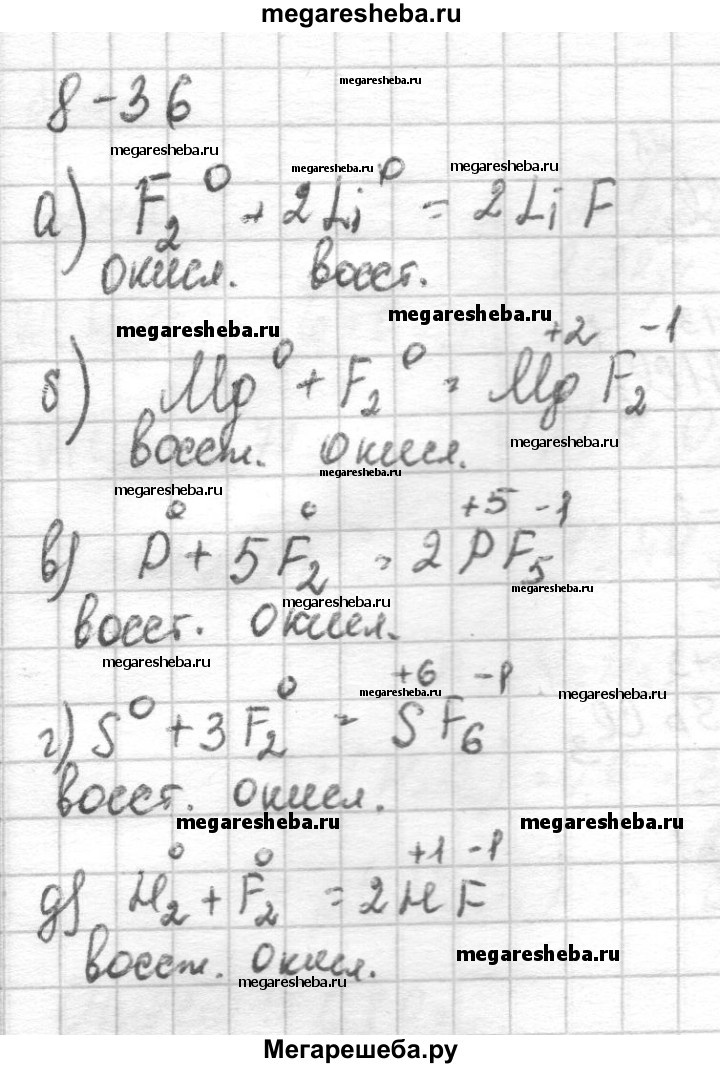 megaresheba.ru
8-36
megaresheba.ru
megaresheba.ru
megaresheba.ru
megaresheba.ru
а) F₂⁰ + 2Li⁰ = 2LiF
окисл. восст.
megaresheba.ru
megaresheba.ru
+2 -1
б) Mg⁰ + F₂⁰ = MgF₂
восст. окисл.
megaresheba.ru
megaresheba.ru
megaresheba.ru
0 0 +5 -1
в) P + 5F₂ = 2PF₅
megaresheba.ru
megaresheba.ru
восст. окисл.
megaresheba.ru
+6 -1
megaresheba.ru
megaresheba.ru
г) S⁰ + 3F₂⁰ = SF₆
восст. окисл.
megaresheba.ru
megaresheba.ru
0 0 +1 -1
д) H₂ + F₂ = 2HF
восст. окисл.
megaresheba.ru
megaresheba.ru
Мегарешеба.ру